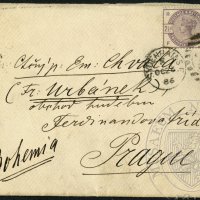 Ctěný p: Em: Chvála
(Fr: Urbánek)
obchod hudebn
Ferdinandova třída
Prague
Bohemia
86